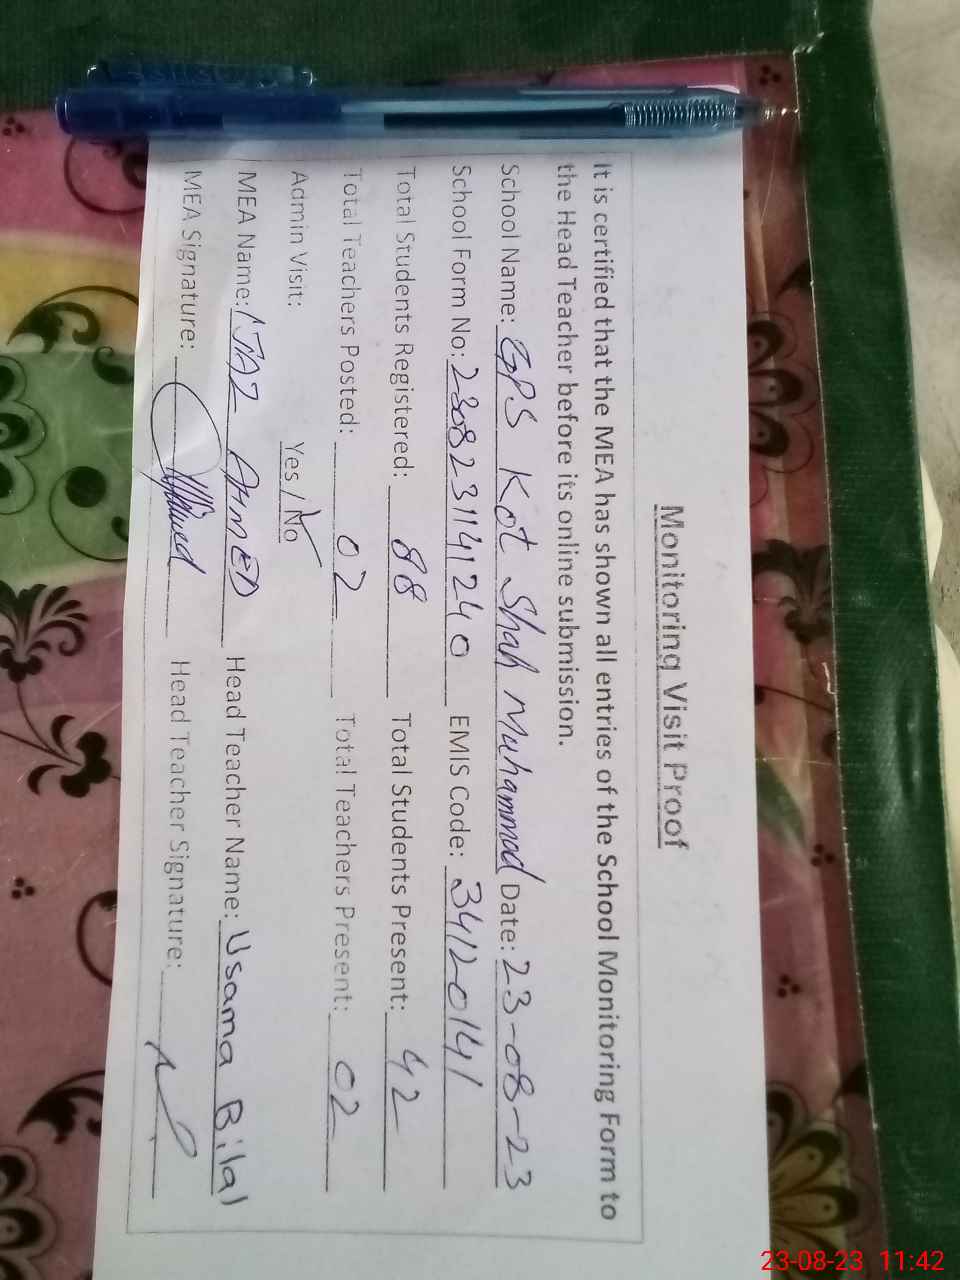 Monitoring Visit Proof
It is certified that the MEA has shown all entries of the School Monitoring Form to
the Head Teacher before its online submission.
School Name: GPS Kot Shah Muhammad Date: 23-08-23
School Form No: 230823114124 0 EMIS Code: 34120141
Total Students Registered: 88 Total Students Present: 42
Total Teachers Posted: 02 Total Teachers Present: 02
Admin Visit: Yes / No
MEA Name: IJAZ AHMED Head Teacher Name: Usama Bilal
MEA Signature: Head Teacher Signature:
23-08-23 11:42